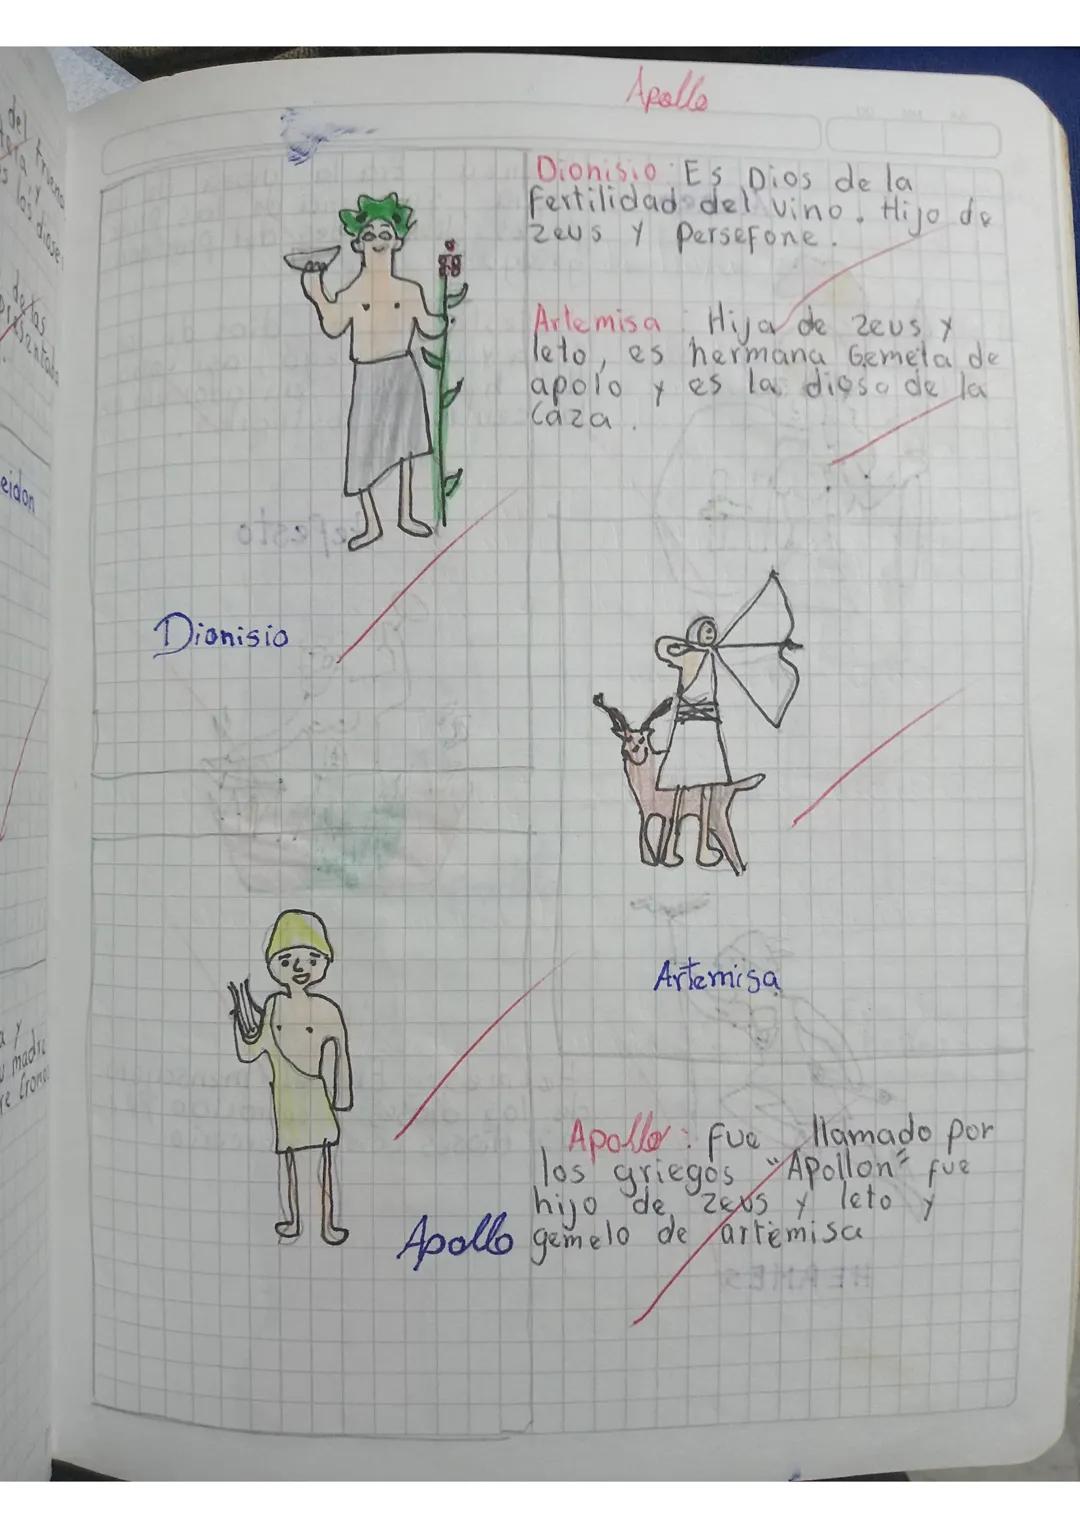 Apollo
Dionisio: Es Dios de la
Fertilidad del vino. Hijo de
Zeus y Persefone.
Artemisa: Hija de Zeus y
leto, es hermana Gemela de
apolo y es la diosa de la
Caza.
Dionisio
Artemisa
Apollo: fue llamado por
los griegos "Apollon" fue
hijo de Zeus y leto y
gemelo de artemisa
Apollo
del trueno
los dioses
de las
eidon
a y
madre
HERMES